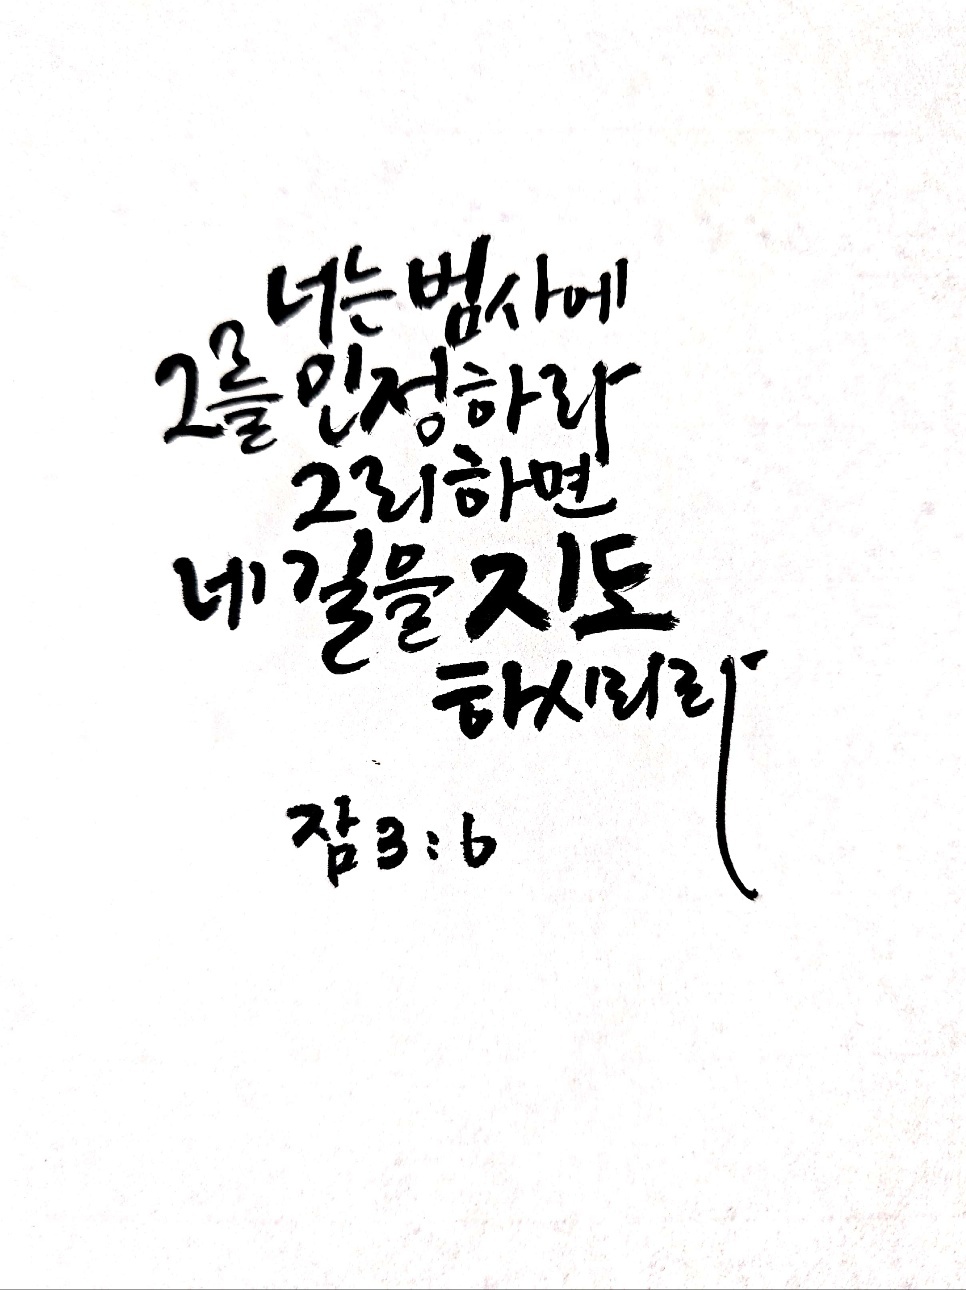 너는 범사에
그를 인정하라
그리하면
네 길을 지도
하시리라
잠 3:6